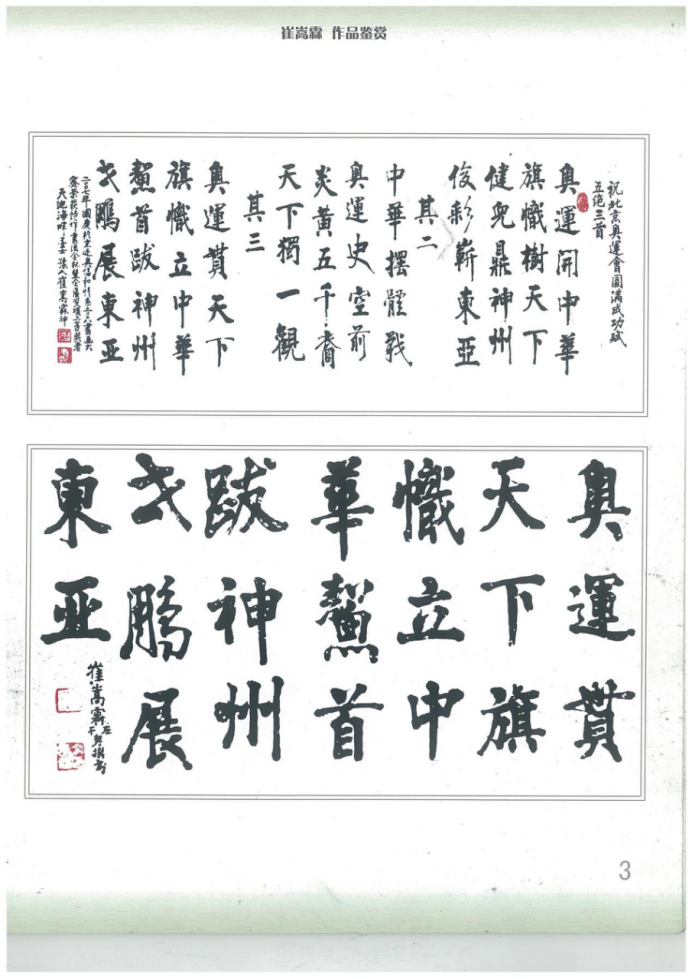 崔嵩霖 作品鉴赏
祝北京奥运會圆满成功賦
五绝三首
奥運開中華
旗幟樹天下
健兒鼎神州
俊彩嶄東亞
其二
中華擺體戰
奥運史空前
炎黄五千裔
天下獨一觀
其三
奥運贯天下
旗幟立中華
鰲首跋神州
弌鵬展東亚
奥運贯
天下旗
幟立中
華鰲首
跋神州
弌鵬展
東亚
崔嵩霖
3